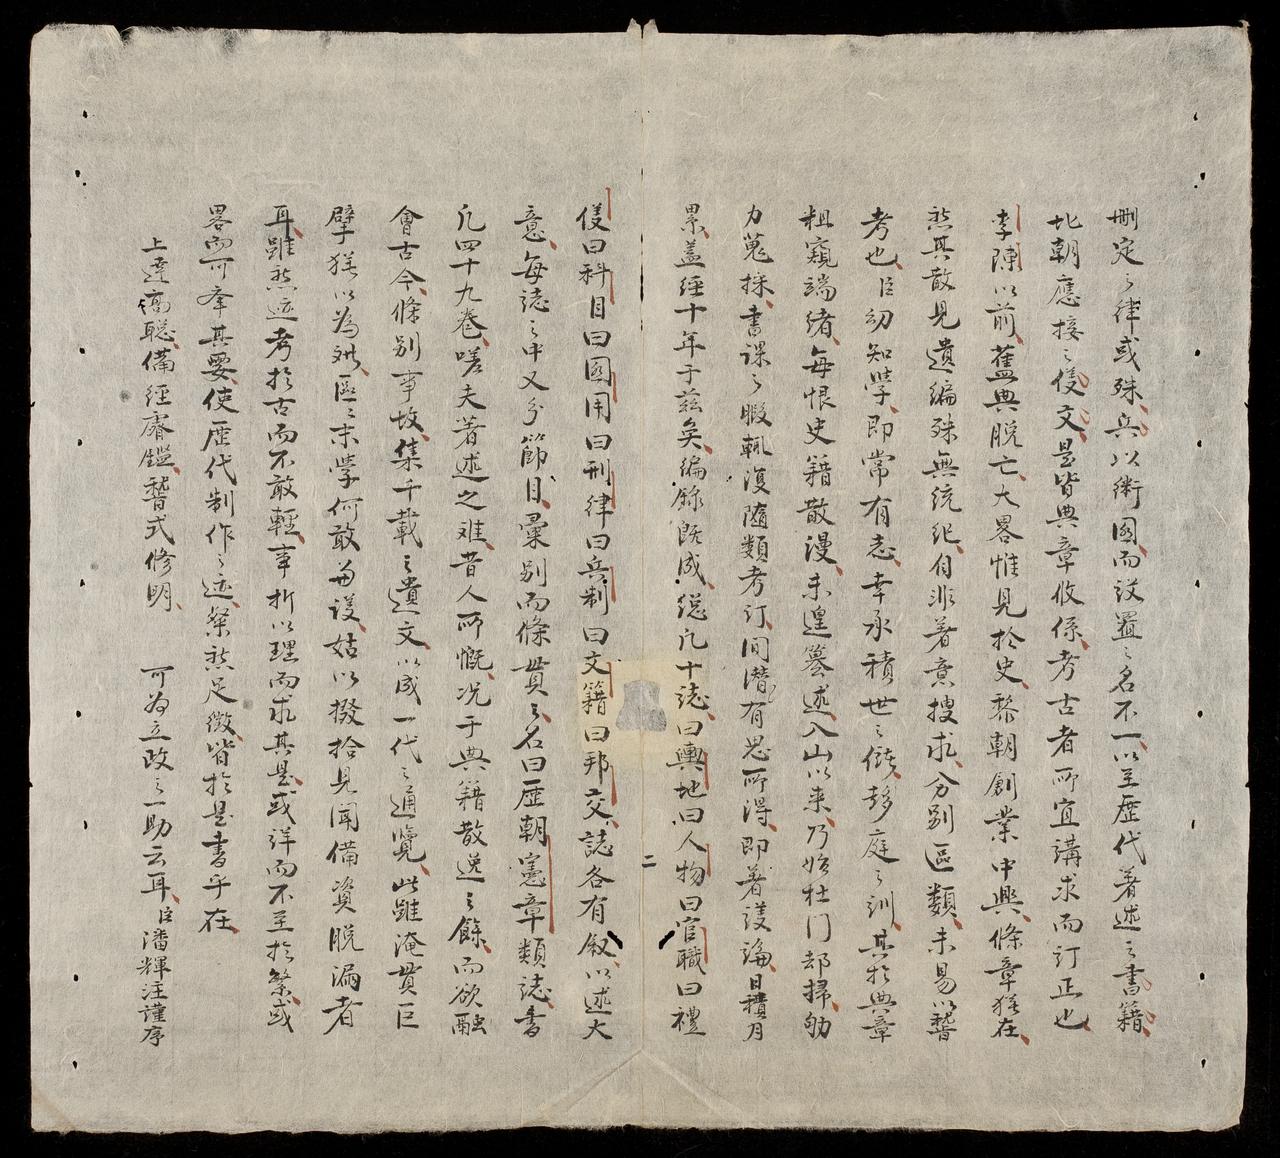 刪定之律或殊兵以衛國而設置之名不一以至歷代著述之書籍
北朝應接之儀文是皆典章攸係考古者所宜講求而訂正也
李陳以前舊典脫亡大畧惟見於史黎朝創業中興條章猶在
然其散見遺編殊無統紀自非著意搜求分別區類未易以稽
考也臣幼知學即常有志幸承積世之餘趍庭之訓其於典章
粗窺端緒每恨史籍散漫未遑纂述入山以来乃始杜门却掃劬
力蒐採書課之暇輒復隨類考订间潛有思所得即著議論日積月
累盖經十年于茲矣編錄既成總凡十誌曰輿地曰人物曰官職曰禮
二
儀曰科目曰國用曰刑律曰兵制曰文籍曰邦交誌各有叙以述大
意每誌之中又分節目彙別而條貫之名曰歷朝憲章類誌書
凡四十九卷嗟夫著述之难昔人所慨况于典籍散逸之餘而欲融
會古今條别事故集千載之遺文以成一代之通覽此雖淹貫巨
擘猶以為难區區末學何敢妄議姑以掇拾見聞備資脫漏者
耳雖然迹考於古而不敢輕事折以理而求其是或詳而不至於繁或
畧而可牽其要使歷代制作之迹粲然足徵皆於是書乎在
上達高聰備經睿鑑稽式修明 可為立政之一助云耳臣潘輝注謹序